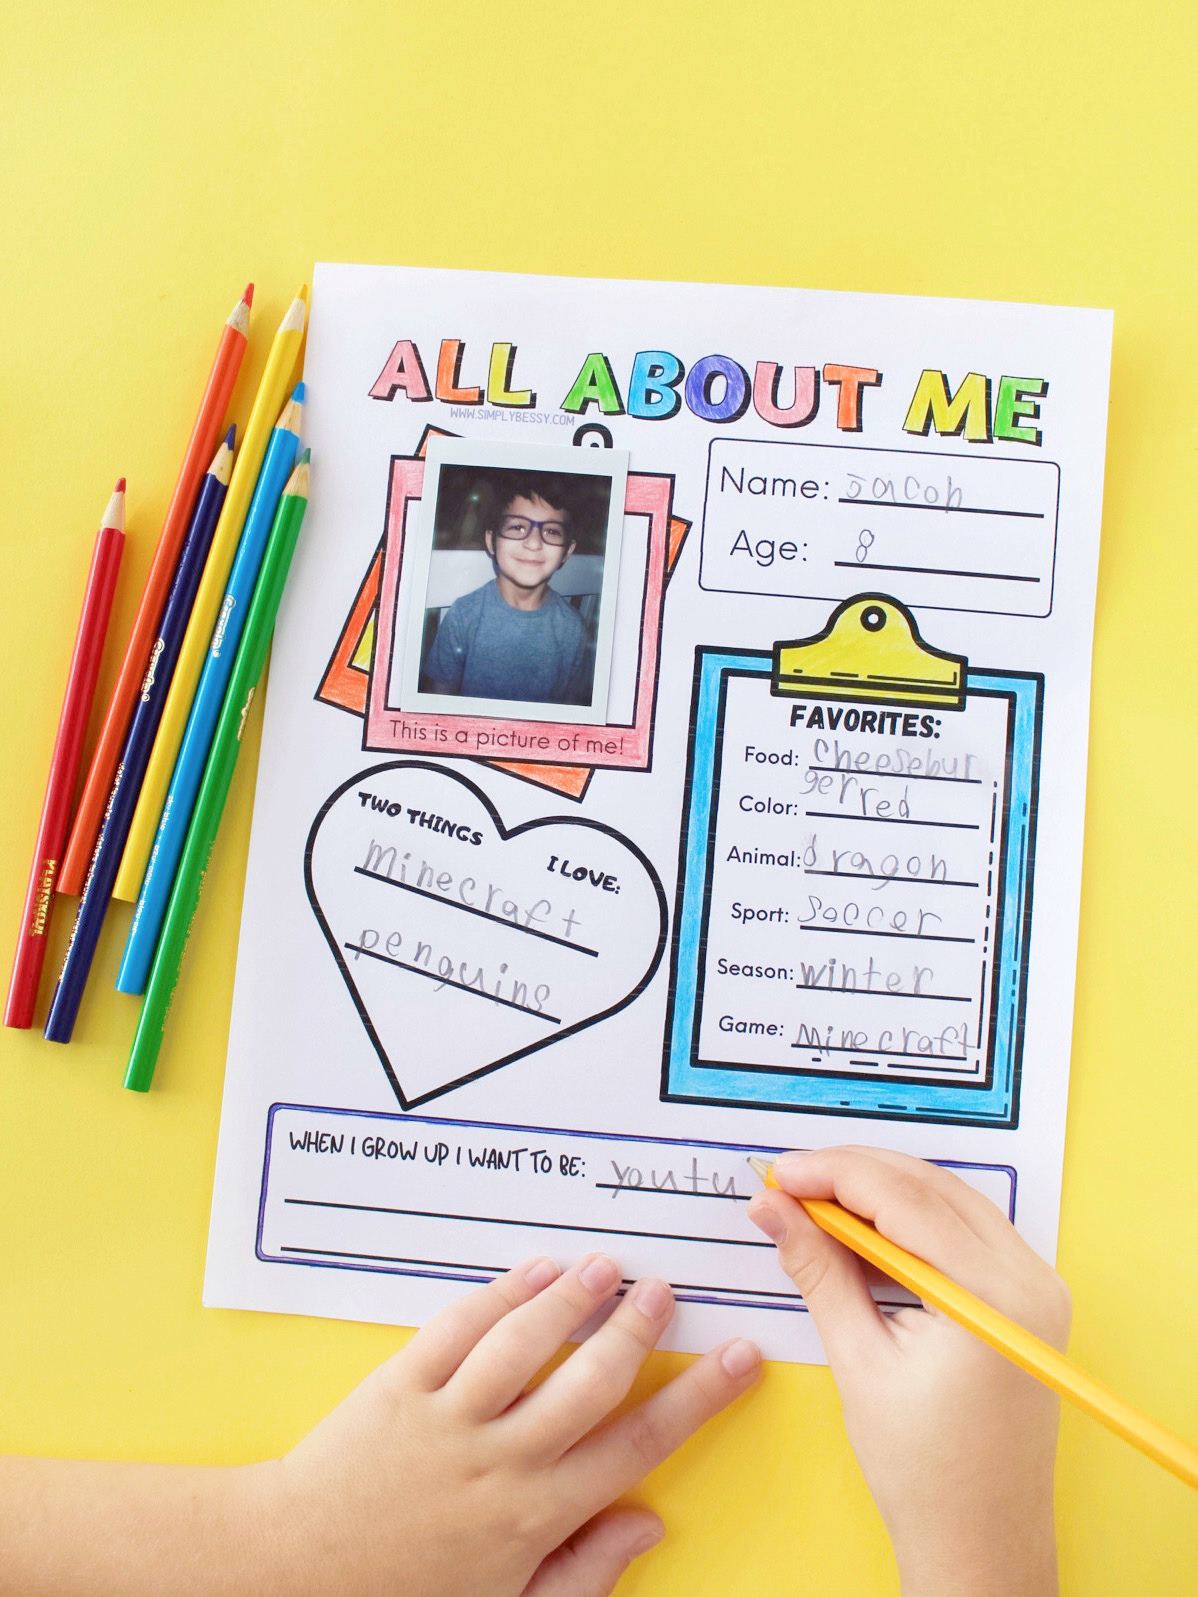 ALL ABOUT ME
WWW.SIMPLYBESSY.COM
Name: Jacob
Age: 8
This is a picture of me!
FAVORITES:
Food: Cheesebur
ger
Color: red
Animal: dragon
Sport: Soccer
Season: winter
Game: Minecraft
TWO THINGS
I LOVE:
Minecraft
penguins
WHEN I GROW UP I WANT TO BE: youtu
PLAYSKOOL
Crayola
Crayola